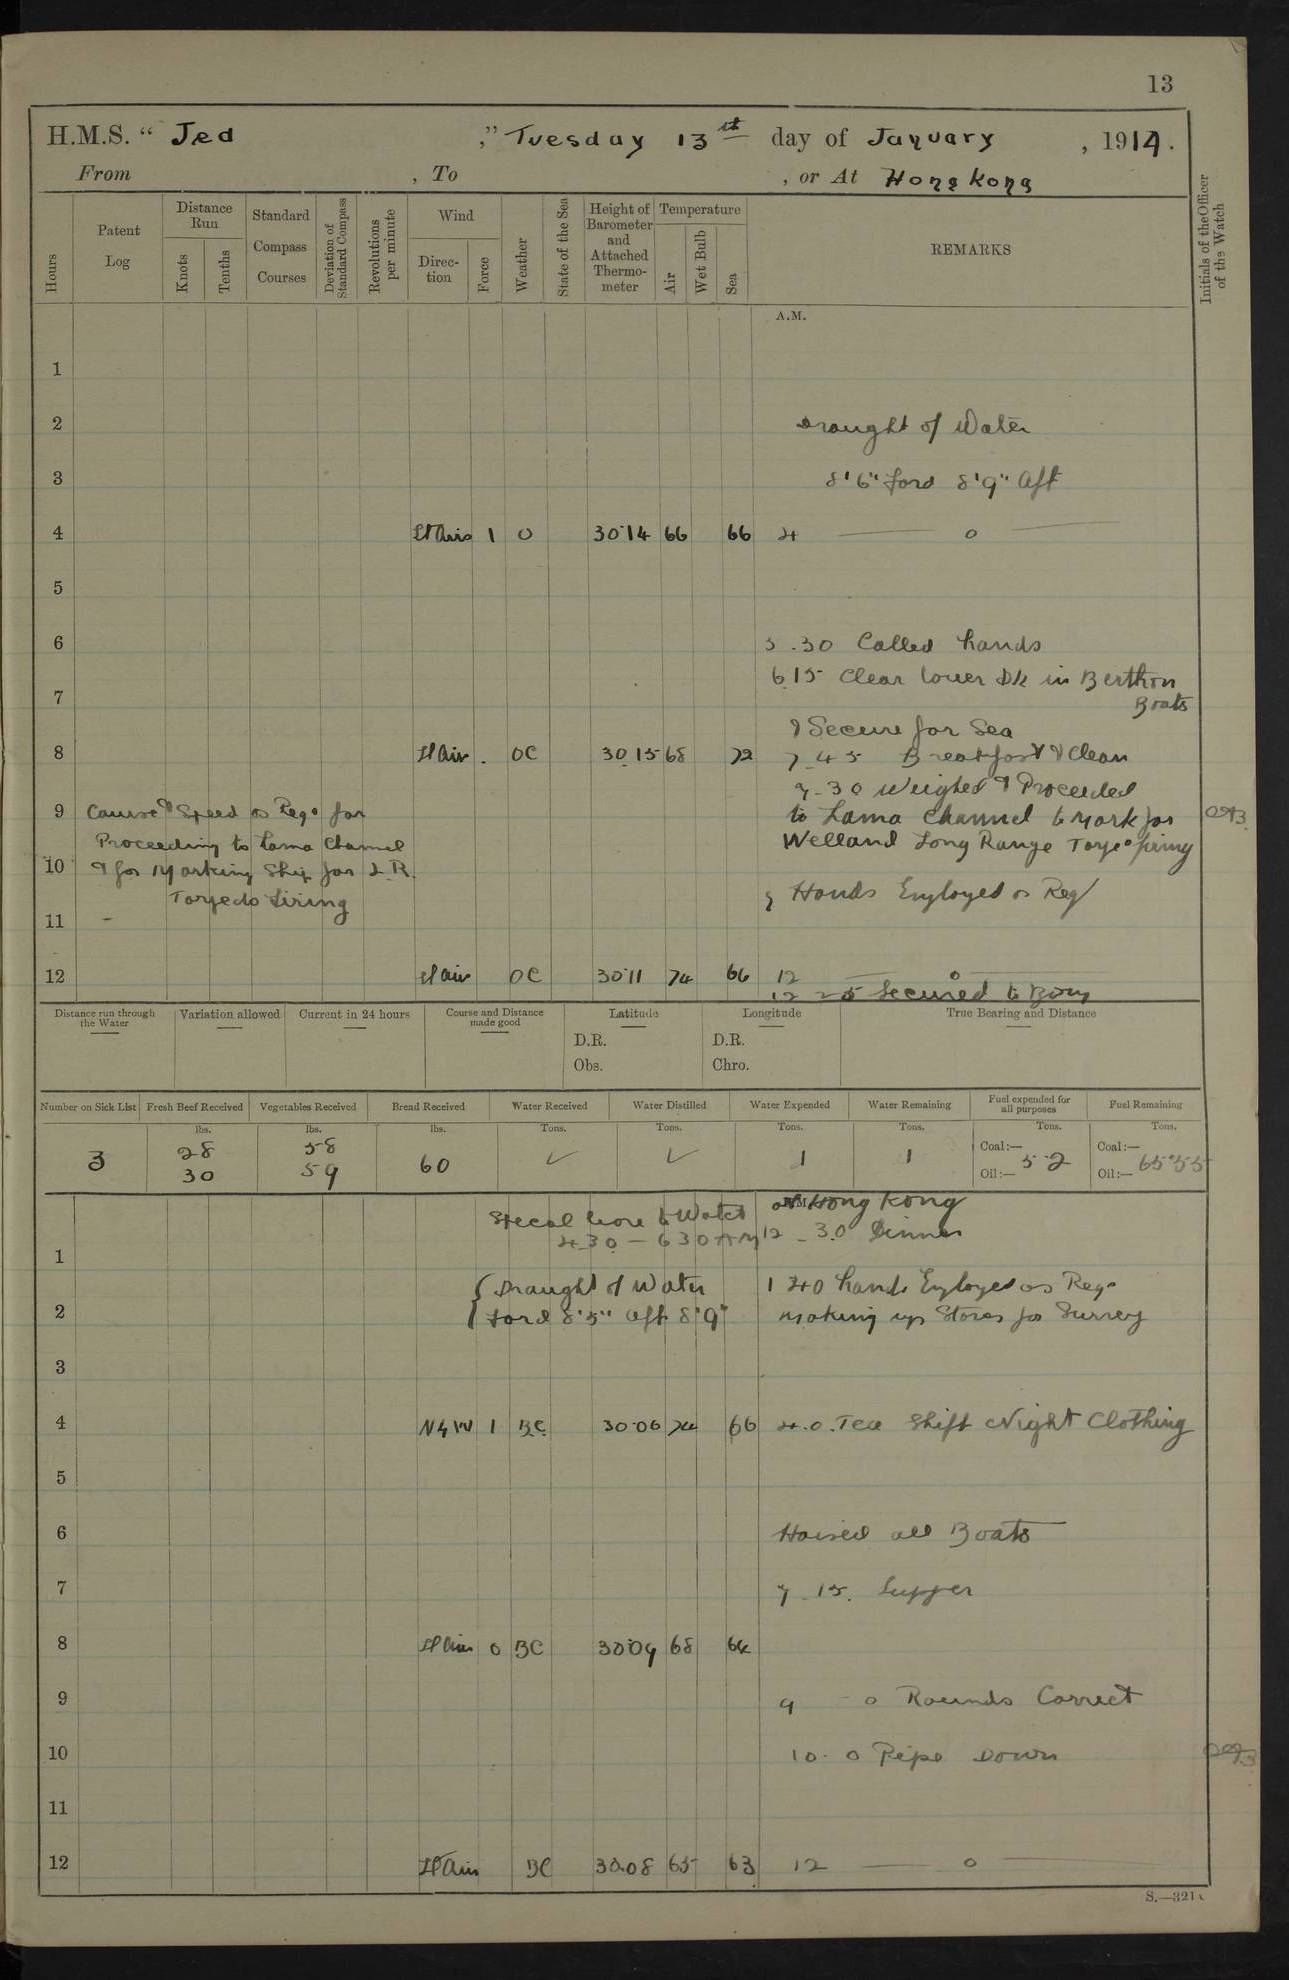 13
H.M.S. "Jed," Tuesday 13th day of January, 1914.
From , To , or At Hong Kong
Hours
Patent Log
Distance Run
Knots
Tenths
Standard Compass Courses
Deviation of Standard Compass
Revolutions per minute
Wind
Direction
Force
Weather
State of the Sea
Height of Barometer and Attached Thermometer
Temperature
Air
Wet Bulb
Sea
REMARKS
Initials of the Officer of the Watch
A.M.
1
2 Draught of Water
3 8'6" Ford 8'9" Aft
4 Lt Airs 1 O 30.14 66 66 4 — 0 —
5
6 5.30 Called hands
6.15 Clear lower Dk in Berthon
7 Boats
& Secure for Sea
8 Lt Air . OC 30.15 68 72 7.45 Breakfast & Clean
9.30 Weighed & Proceeded
9 Course & Speed as Reqd for to Lama Channel to Mark for
Proceeding to Lama Channel Welland Long Range Torpo firing
10 & for Marking Ship for L.R.
Torpedo Firing Hands Employed as Req
11 -
12 Lt Air OC 30.11 74 66 12 — 0 —
12 25 Secured to Buoy
Distance run through the Water
Variation allowed
Current in 24 hours
Course and Distance made good
Latitude
D.R.
Obs.
Longitude
D.R.
Chro.
True Bearing and Distance
Number on Sick List
Fresh Beef Received
Vegetables Received
Bread Received
Water Received
Water Distilled
Water Expended
Water Remaining
Fuel expended for all purposes
Fuel Remaining
lbs. lbs. lbs. Tons. Tons. Tons. Tons. Tons. Tons.
3 28 58 60 ✓ ✓ 1 1 Coal:— 5.2 Coal:— 65.55
30 59 Oil:— Oil:—
at Hong Kong
Special leave to Watch 12-30 Dinner
4.30 - 6 30 AM
1
{Draught of Water 1 40 hands Employed as Req.
2 Ford 8'5" Aft 8'9" making up Stores for Survey
3
4 N & W 1 BC 30.06 74 66 4.0. Tea Shift Night Clothing
5
6 Hoised all Boats
7 7.15. Supper
8 Lt Airs 0 BC 30.09 68 64
9 9 - 0 Rounds Correct
10 10.0 Pipe Down
11
12 Lt Airs BC 30.08 65 63 12 — 0 —
S.—321